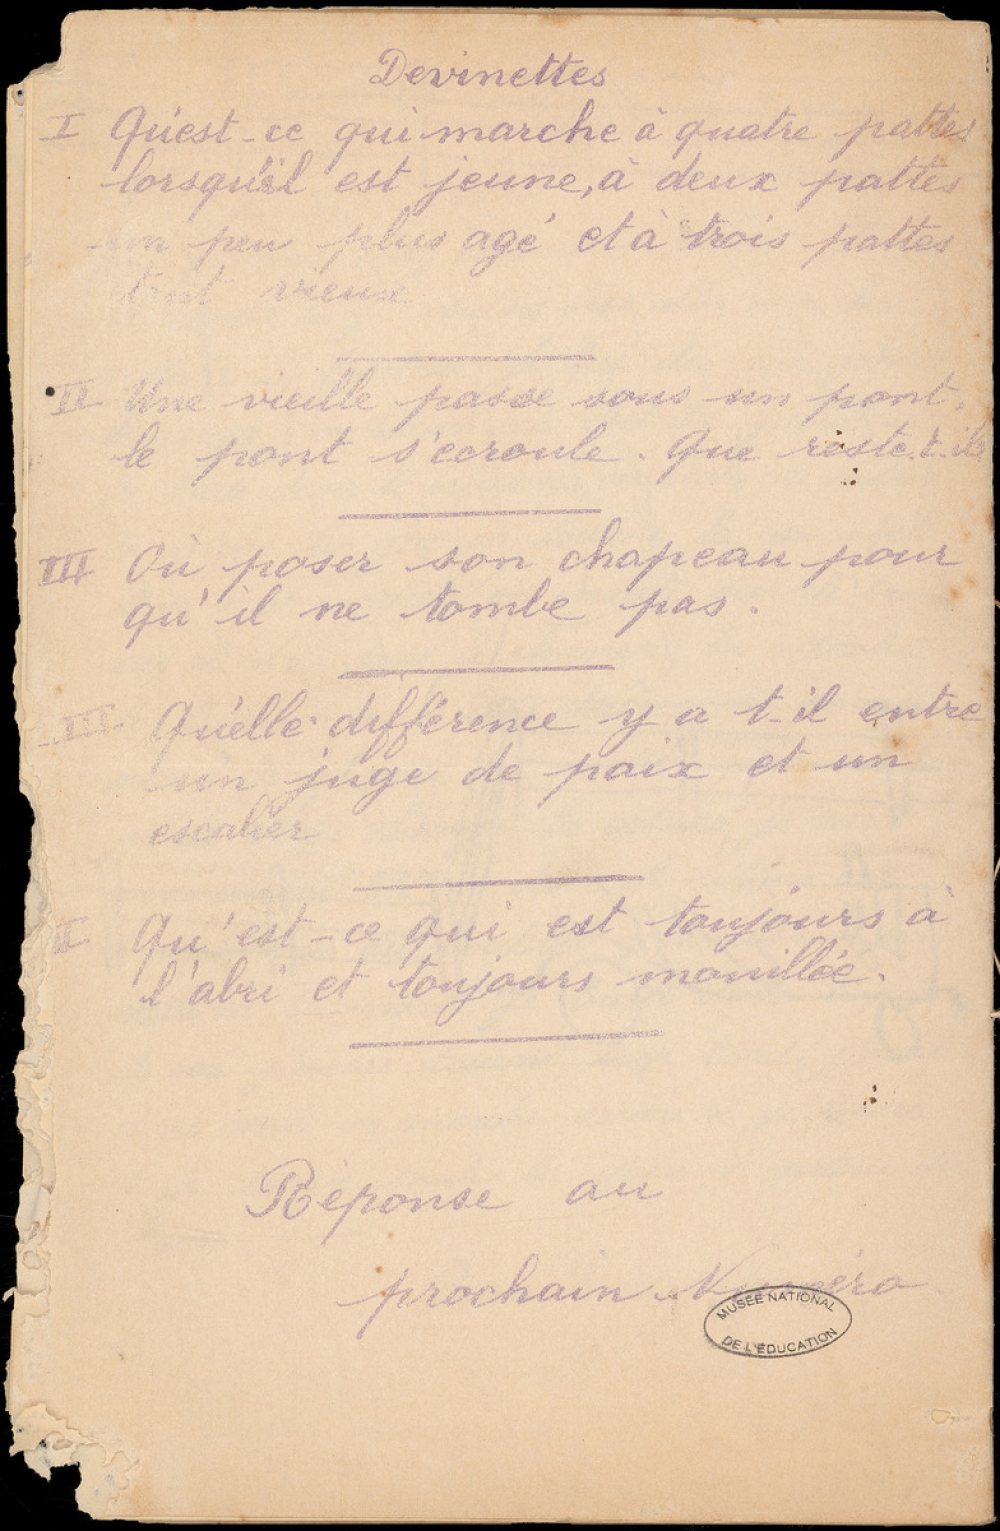 Devinettes
I Qu'est-ce qui marche à quatre pattes
lorsqu'il est jeune, à deux pattes
un peu plus agé et à trois pattes
tout vieux
II Une vieille passe sous un pont,
le pont s'ecroule. Que reste.t-il
III Où poser son chapeau pour
qu'il ne tombe pas.
III Qu'elle différence y a t-il entre
un juge de paix et un
escalier
Qu'est-ce qui est toujours à
l'abri et toujours mouillée.
Réponse au
prochain Numéro
MUSÉE NATIONAL
DE L'ÉDUCATION